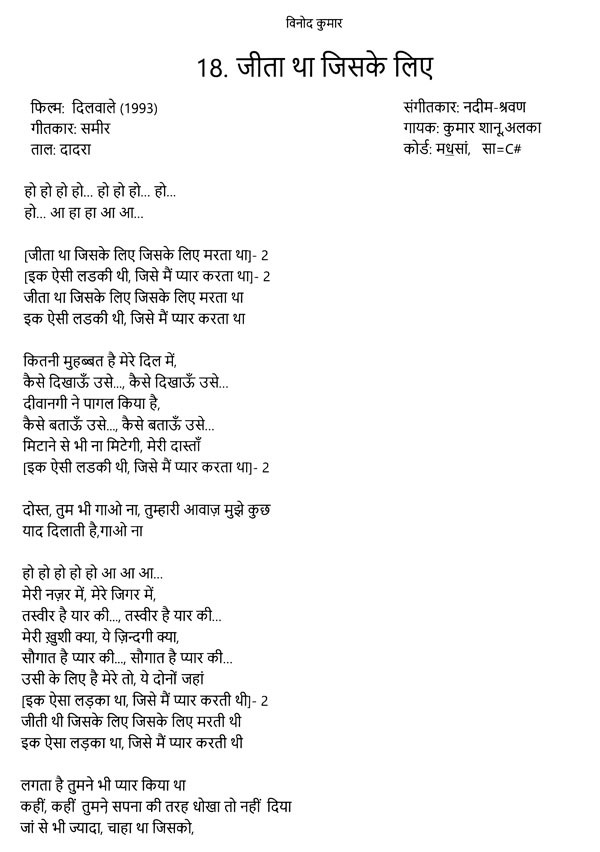 विनोद कुमार
18. जीता था जिसके लिए
फिल्म: दिलवाले (1993)
संगीतकार: नदीम-श्रवण
गीतकार: समीर
गायक: कुमार शानू,अलका
ताल: दादरा
कोर्ड: मध॒सां, सा=C#
हो हो हो हो... हो हो हो... हो...
हो... आ हा हा आ आ...
[जीता था जिसके लिए जिसके लिए मरता था]- 2
[इक ऐसी लडकी थी, जिसे मैं प्यार करता था]- 2
जीता था जिसके लिए जिसके लिए मरता था
इक ऐसी लडकी थी, जिसे मैं प्यार करता था
कितनी मुहब्बत है मेरे दिल में,
कैसे दिखाऊँ उसे..., कैसे दिखाऊँ उसे...
दीवानगी ने पागल किया है,
कैसे बताऊँ उसे..., कैसे बताऊँ उसे...
मिटाने से भी ना मिटेगी, मेरी दास्ताँ
[इक ऐसी लडकी थी, जिसे मैं प्यार करता था]- 2
दोस्त, तुम भी गाओ ना, तुम्हारी आवाज़ मुझे कुछ
याद दिलाती है,गाओ ना
हो हो हो हो हो आ आ आ...
मेरी नज़र में, मेरे जिगर में,
तस्वीर है यार की..., तस्वीर है यार की...
मेरी ख़ुशी क्या, ये ज़िन्दगी क्या,
सौगात है प्यार की..., सौगात है प्यार की...
उसी के लिए है मेरे तो, ये दोनों जहां
[इक ऐसा लड़का था, जिसे मैं प्यार करती थी]- 2
जीती थी जिसके लिए जिसके लिए मरती थी
इक ऐसा लड़का था, जिसे मैं प्यार करती थी
लगता है तुमने भी प्यार किया था
कहीं, कहीं तुमने सपना की तरह धोखा तो नहीं दिया
जां से भी ज्यादा, चाहा था जिसको,